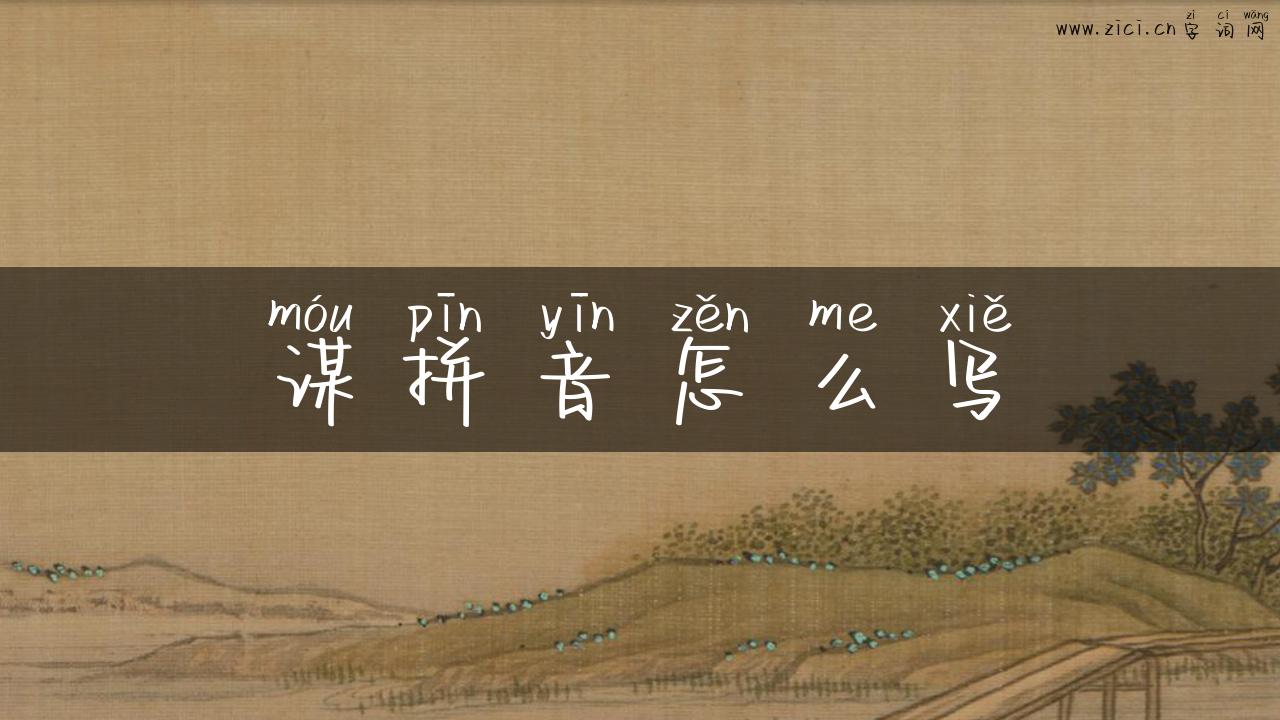 zì cí wǎng
www.zici.cn字词网
móu pīn yīn zěn me xiě
谋拼音怎么写